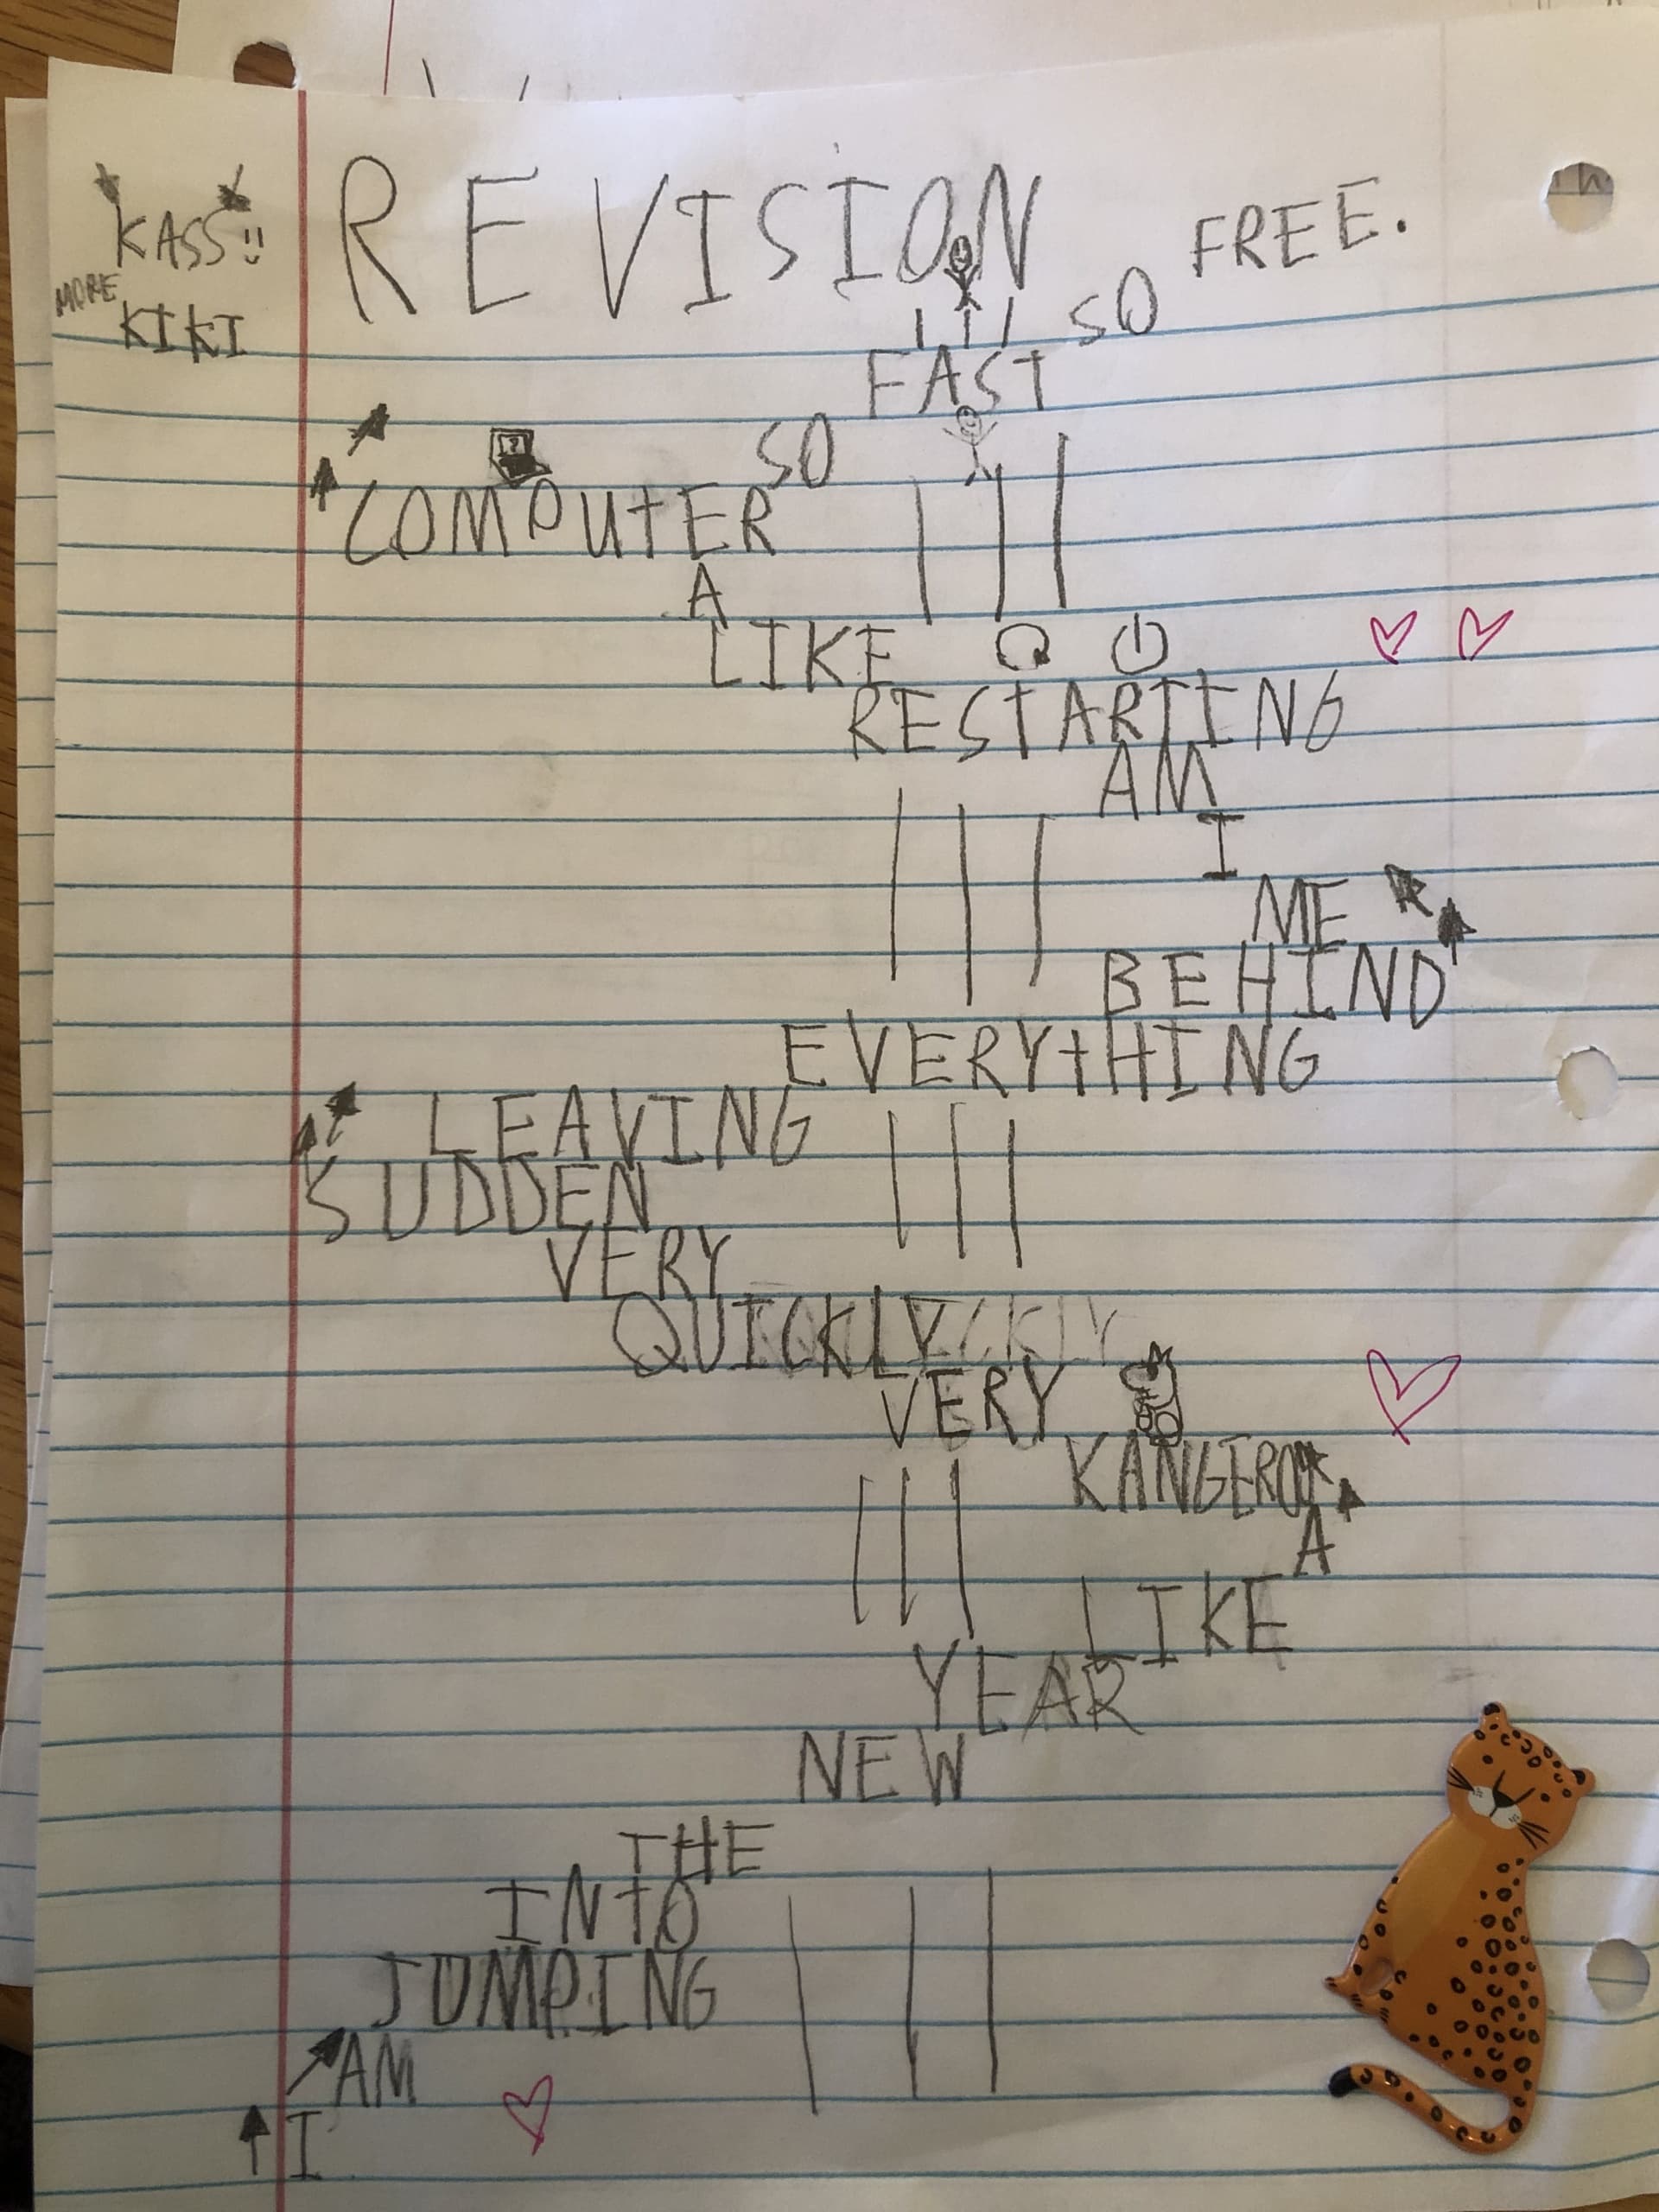 REVISION
KASS
MORE
KIKI
I
AM
JUMPING
INTO
THE
NEW
YEAR
LIKE
A
KANGEROO
VERY
QUICKLY
VERY
SUDDEN
LEAVING
EVERYTHING
BEHIND
ME
I
AM
RESTARTING
LIKE
A
COMPUTER
SO
FAST
SO
FREE.